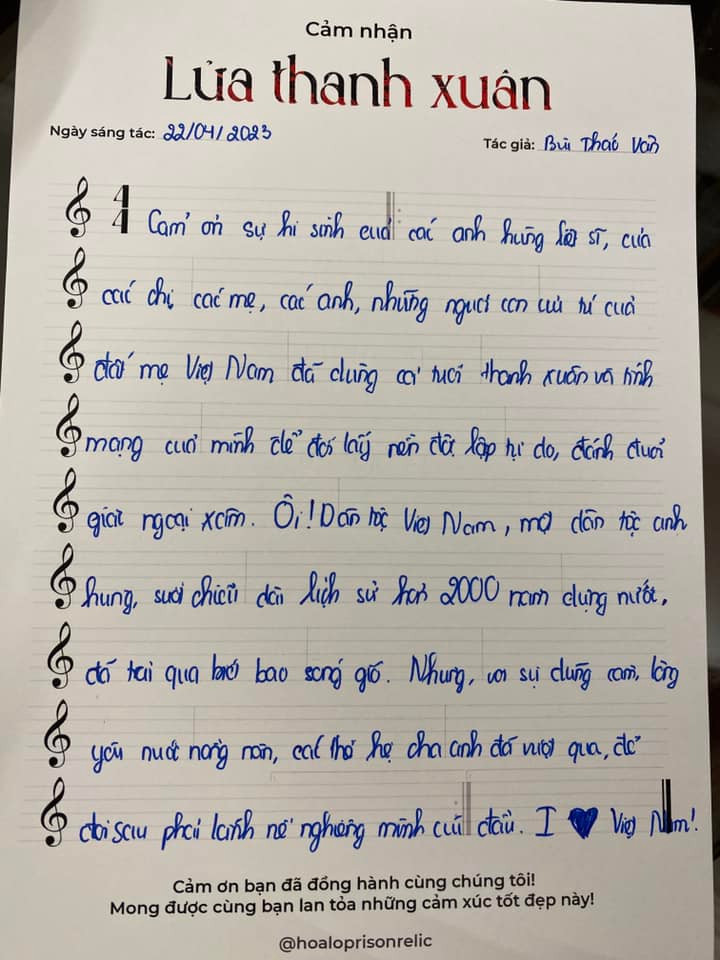 Cảm nhận
Lửa thanh xuân
Ngày sáng tác: 22/04/2023
Tác giả: Bùi Thảo Vân
4
4
Cảm ơn sự hi sinh của các anh hùng liệt sĩ, của
các chị các mẹ, các anh, những người con ưu tú của
đất mẹ Việt Nam đã dùng cả tuổi thanh xuân và tính
mạng của mình để đổi lấy nền độc lập tự do, đánh đuổi
giặc ngoại xâm. Ôi! Dân tộc Việt Nam, một dân tộc anh
hùng, suốt chiều dài lịch sử hơn 2000 năm dựng nước,
đã trải qua biết bao sóng gió. Nhưng, với sự dũng cảm, lòng
yêu nước nồng nàn, các thế hệ cha anh đã vượt qua, để
đời sau phải nghiêng mình cúi đầu. I ♥ Việt Nam!
Cảm ơn bạn đã đồng hành cùng chúng tôi!
Mong được cùng bạn lan tỏa những cảm xúc tốt đẹp này!
@hoaloprisonrelic